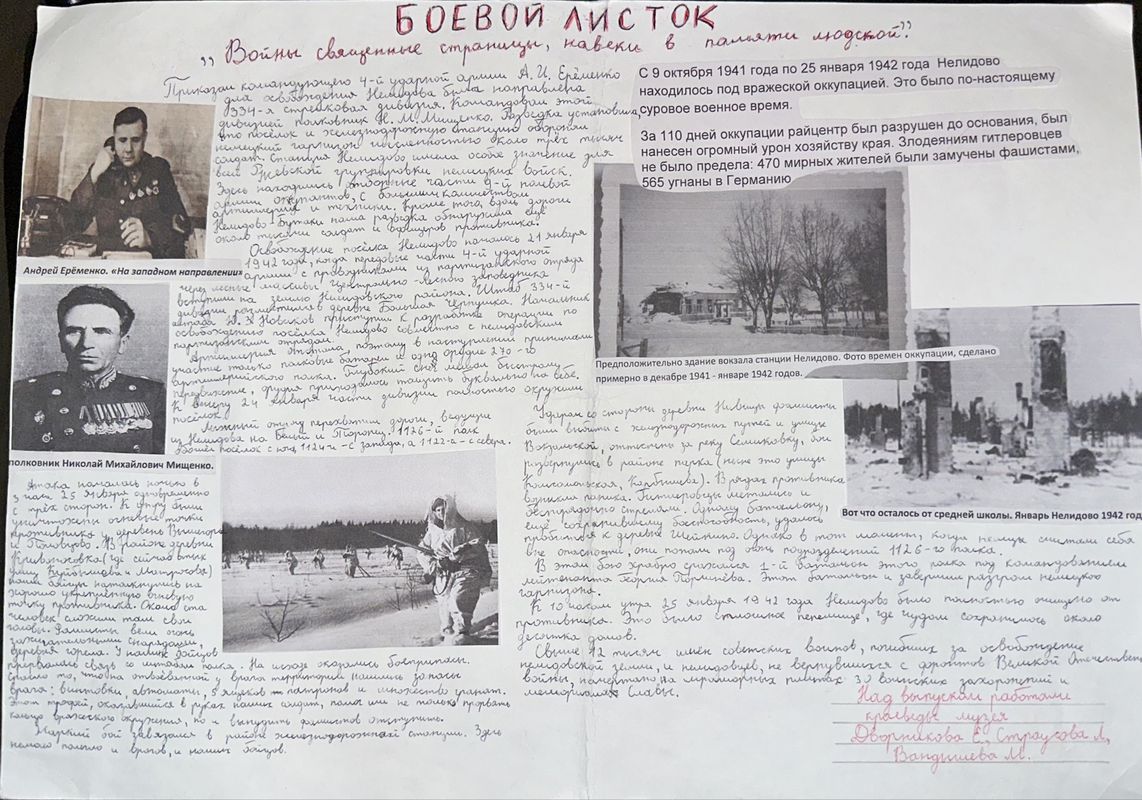 БОЕВОЙ ЛИСТОК
„Войны священные страницы, навеки в памяти людской."
Приказом командующего 4-й ударной армии А.И. Ерёменко
для освобождения Нелидова была направлена
334-я стрелковая дивизия. Командовал этой
дивизией полковник Н.М. Мищенко. Разведка установила,
что посёлок и железнодорожную станцию обороняли
немецкий гарнизон численностью около трёх тысяч
солдат. Станция Нелидово имела особое значение для
всей Ржевской группировки немецких войск.
Здесь находились отборные части 9-й полевой
армии оккупантов, с большим количеством
артиллерии и техники. Кроме того, вдоль дороги
Нелидово-Бутаки наша разведка обнаружила ещё
около тысячи солдат и офицеров противника.
Освобождение посёлка Нелидово началось 21 января
1942 года, когда передовые части 4-й ударной
армии с проводниками из партизанского отряда
через лесные массивы Центрально-лесного заповедника
вступили на землю Нелидовского района. Штаб 334-й
дивизии разместился в деревне Большая Чернушка. Начальник
штаба Новиков приступил к разработке операции по
освобождению посёлка Нелидово совместно с нелидовским
партизанским отрядом.
Артиллерия отстала, поэтому в наступлении принимали
участие только полковые батареи и одно орудие 270-го
артиллерийского полка. Глубокий снег мешал быстрому
передвижению, орудия приходилось тащить буквально на себе.
К вечеру 24 января части дивизии полностью окружили
посёлок.
Лыжный отряд перехватил дороги, ведущие
из Нелидова на Белый и Торопец, 1126-й полк
обошёл посёлок с юга, 1124-й - с запада, а 1122-й - с севера.
Андрей Ерёменко. «На западном направлении»
полковник Николай Михайлович Мищенко.
Атака началась ночью в
3 часа 25 января одновременно
с трёх сторон. К утру были
уничтожены огневые точки
противника у деревень
и В районе деревни
Кривцовка (где сейчас стык
улиц Куйбышева и Матросова)
наши бойцы наткнулись на
хорошо укреплённую огневую
точку противника. Около ста
человек сложили там свои
головы. Фашисты вели огонь
зажигательными снарядами,
деревня горела. У наших бойцов
прервалась связь со штабом полка. На исходе оказались боеприпасы.
Спасло то, что на отвоёванной у врага территории нашлись запасы
врага: винтовки, автоматы, 5 ящиков патронов и множество гранат.
Этот трофей, оказавшийся в руках наших солдат, помог им не только прорвать
кольцо вражеского окружения, но и вынудить фашистов отступить.
Жаркий бой завязался в районе железнодорожной станции. Здесь
немало полегло и врагов, и наших бойцов.
С 9 октября 1941 года по 25 января 1942 года Нелидово
находилось под вражеской оккупацией. Это было по-настоящему
суровое военное время.
За 110 дней оккупации райцентр был разрушен до основания, был
нанесен огромный урон хозяйству края. Злодеяниям гитлеровцев
не было предела: 470 мирных жителей были замучены фашистами,
565 угнаны в Германию
Предположительно здание вокзала станции Нелидово. Фото времен оккупации, сделано
примерно в декабре 1941 - январе 1942 годов.
Вот что осталось от средней школы. Январь Нелидово 1942 год
Ударом со стороны деревни Нивы фашисты
были выбиты с железнодорожных путей и улицы
Вокзальной, оттеснены за реку Семиковку, бои
развернулись в районе парка (ныне это улицы
Комсомольская, Карбышева). В рядах противника
возникла паника. Гитлеровцы метались и
беспорядочно стреляли. Одному батальону,
ещё сохранившему боеспособность, удалось
пробиться к деревне Шейкино. Однако в тот момент, когда немцы считали себя
вне опасности, они попали под огонь подразделений 1126-го полка.
В этом бою храбро сражался 1-й батальон этого полка под командованием
лейтенанта Георгия Этот батальон и завершил разгром немецкого
гарнизона.
К 10 часам утра 25 января 1942 года Нелидово было полностью очищено от
противника. Это было сплошное пепелище, где чудом сохранилось около
десятка домов.
Свыше 12 тысяч имён советских воинов, погибших за освобождение
нелидовской земли, и нелидовцев, не вернувшихся с фронтов Великой Отечествен
войны, начертано на мраморных плитах 30 воинских захоронений и
мемориалах Славы.
Над выпуском работали
краеведы музея
Дворникова Е., Страусова Л,
Вандышева М.